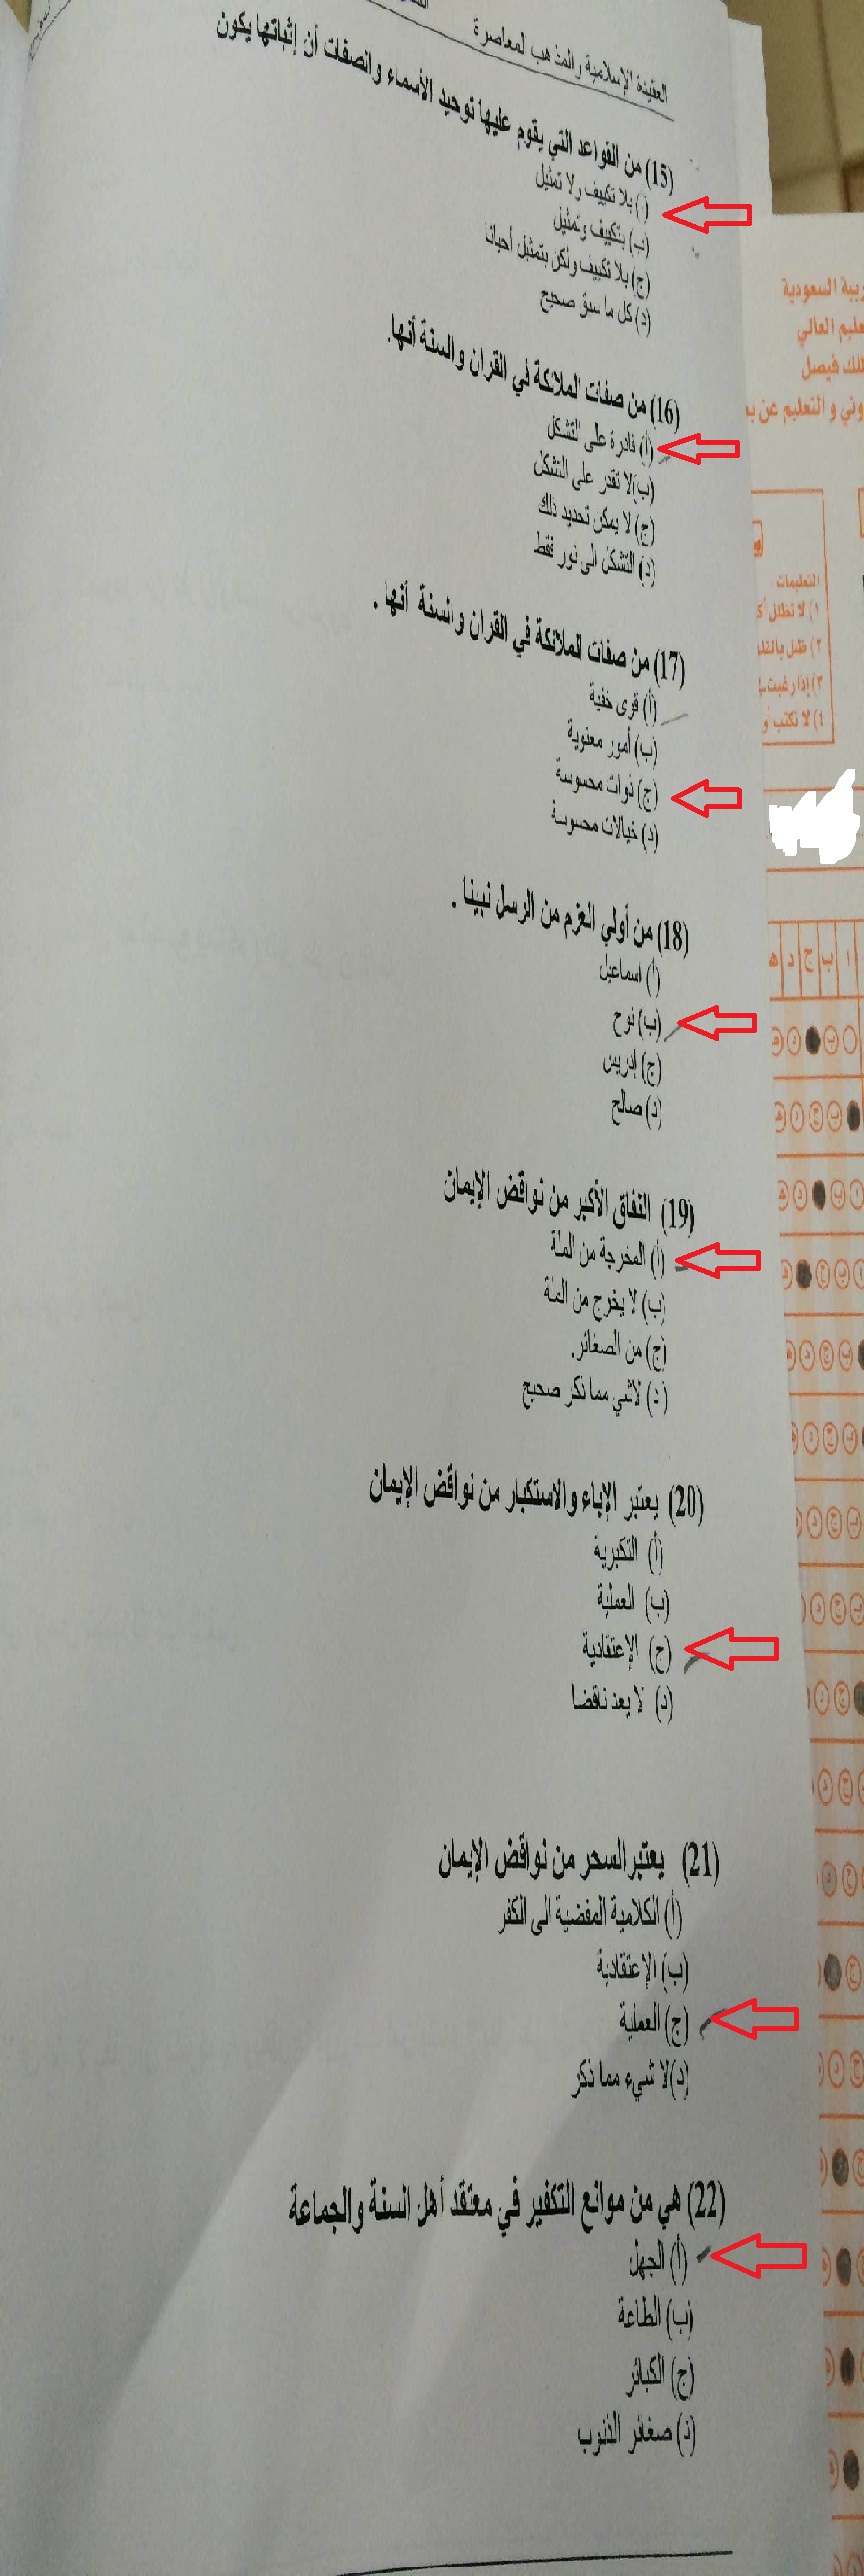 العقيدة الإسلامية والمذهب لمعاصرة
(15) من القواعد التي يقوم عليها توحيد الأسماء والصفات أن إثباتها يكون
(أ) بلا تكييف ولا تمثيل
(ب) بتكييف وتمثيل
(ج) بلا تكييف ولكن بتمثيل أحيانا
(د) كل ما سبق صحيح
(16) من صفات الملائكة في القران والسنة أنها.
(أ) قادرة على التشكل
(ب) لا تقدر على التشكل
(ج) لا يمكن تحديد ذلك
(د) التشكل الى نور فقط
(17) من صفات الملائكة في القران والسنة أنها .
(أ) قوى خفية
(ب) أمور معنوية
(ج) ذوات محسوسة
(د) خيالات محسوسة
(18) من أولي العزم من الرسل نبينا .
(أ) اسماعيل
(ب) نوح
(ج) إدريس
(د) صالح
(19) النفاق الأكبر من نواقض الإيمان
(أ) المخرجة من الملة
(ب) لا يخرج من الملة
(ج) من الصغائر.
(د) لاشي مما ذكر صحيح
(20) يعتبر الإباء والاستكبار من نواقض الإيمان
(أ) التكبرية
(ب) العملية
(ج) الإعتقادية
(د) لا يعد ناقضا
(21) يعتبرالسحر من نواقض الإيمان
(أ) الكلامية المفضية الى الكفر
(ب) الإعتقادية
(ج) العملية
(د) لا شيء مما ذكر
(22) هي من موانع التكفير في معتقد أهل السنة والجماعة
(أ) الجهل
(ب) الطاعة
(ج) الكبائر
(د) صغائر الذنوب
ربية السعودية
عليم العالي
لك فيصل
وني و التعليم عن
التعليمات
١) لا تظلل
٢) ظلل بالقلم
٣) إذا رغبت
٤) لا تكتب أو
ا ب ج د هـ